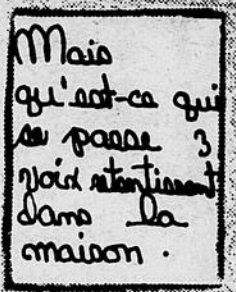 Mais
qu'est-ce qui
se passe 3
voix retentissent
dans la
maison.